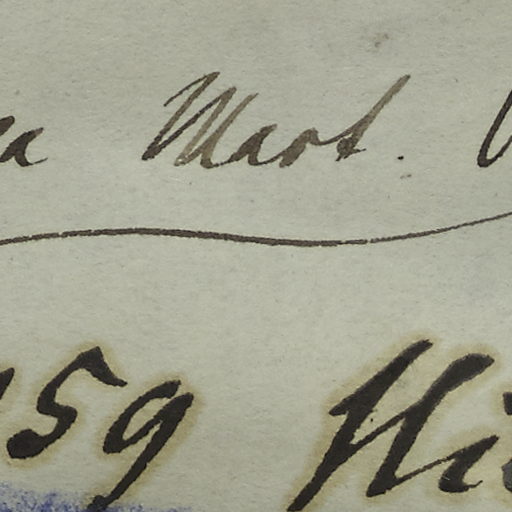 a Mart.
59 Hi